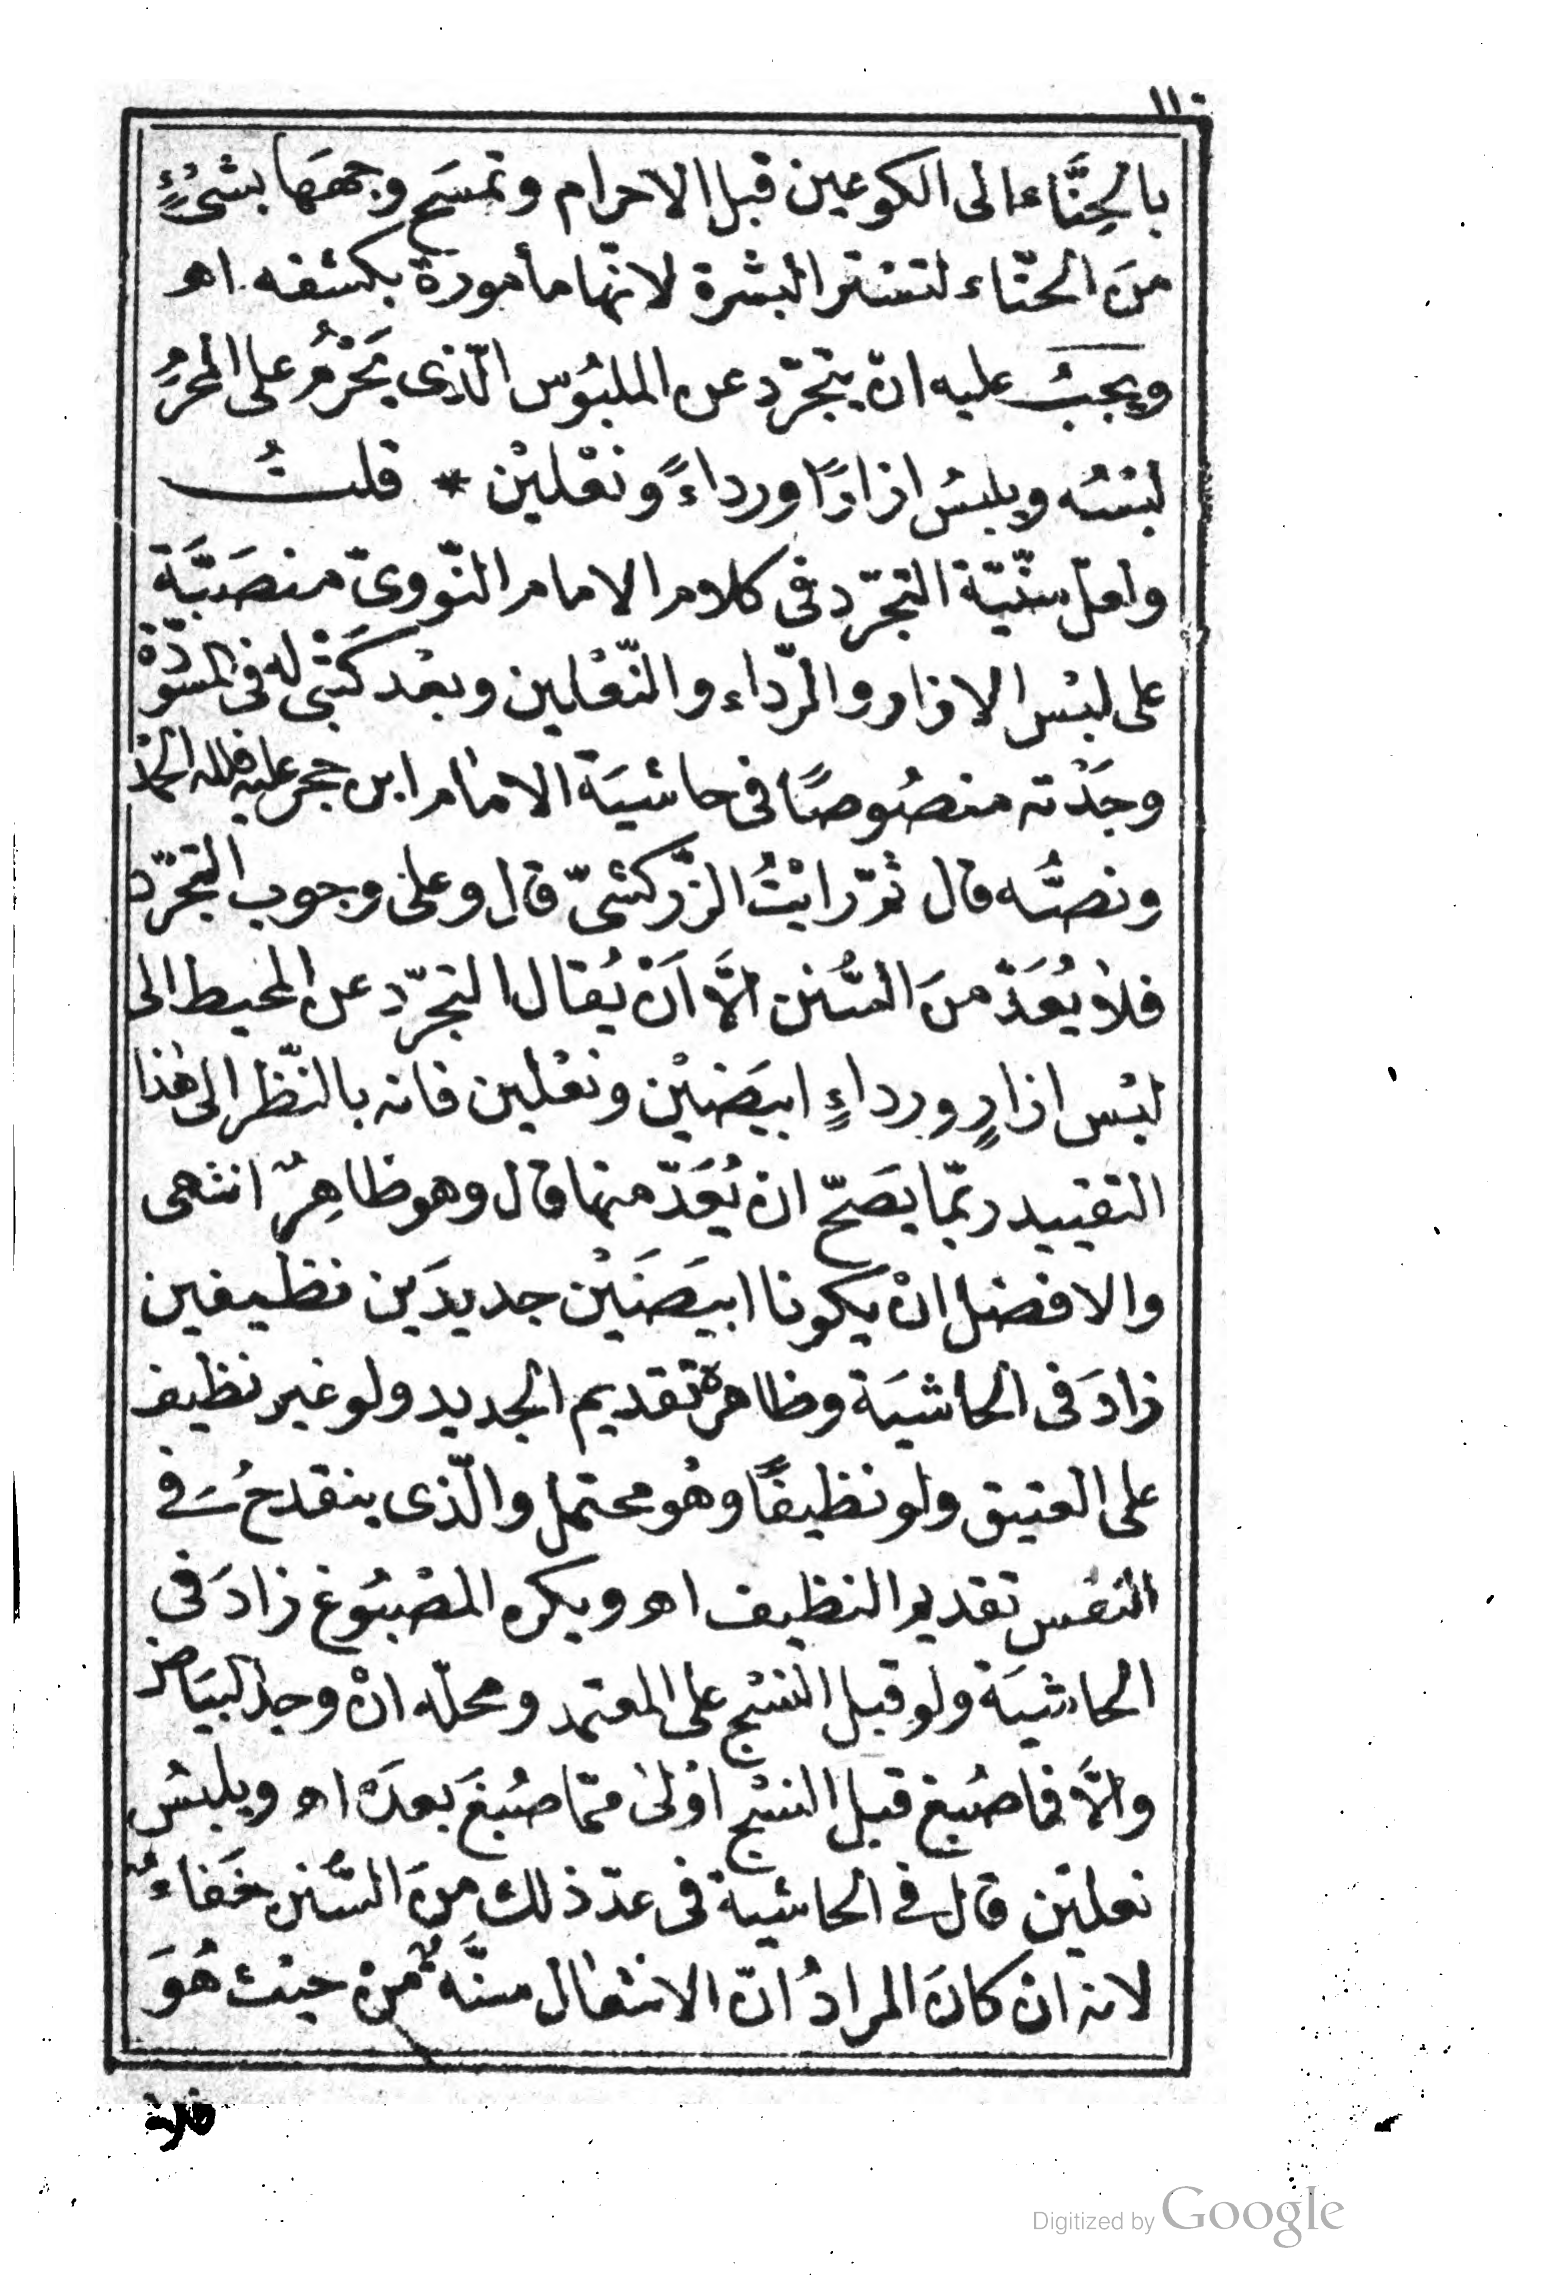 ١١٠
بالحِنَّاء الى الكوعين قبل الاحرام وتمسَح وجههَا بشىءٍ
منَ الحنّاء لتستر البشرة لانّها مأمورة بكشفه اه
ويجبُ عليه انْ يتجرّد عن الملبُوس الّذِى يَحْرُمُ على المحرِمِ
لبْسُه ويلبسُ ازارًا ورداءً ونعْليْن * قلتُ
ولعلّ سنّيّة التجرّد فى كلام الامام النّووىّ منصَبَّة
على لبْس الازار والرّداء والنّعْلين وبعْد كَتْبى له فى المسوّدّة
وجَدْته منصُوصًا فى حاشيَة الامَام ابن حجر عليه فلله الحمْد
ونصُّه قال ثمّ رايْتُ الزَّركشىّ قال وعلى وجوب التجرّد
فلا يُعَدّ منَ السُّنن الَّا اَنْ يُقال التجرّد عن المخيط الى
لبْس ازارٍ ورداءٍ ابيَضيْن ونعْلين فانه بالنّظر الى هٰذا
التقييد ربّما يصَحّ ان يُعَدّ منها قال وهو ظاهِرٌ انتهى
والافضل انْ يكونا ابيَضَيْن جديدَين نظيفين
زادَ فى الحاشيَة وظاهره تقديم الجديد ولو غير نظيف
على العتيق ولو نظيفًا وهُو محتمل والّذى ينقدحُ فى
النفس تقديم النظيف اه ويكره المصْبُوغ زادَ فى
الحاشيَة ولو قبل النسْج على المعتمد ومحلّه انْ وجد البيَاض
والَّا فما صُبغ قبل النسْج اوْلىٰ ممّا صُبغَ بعدَه اه ويلبسُ
نعلين قال فى الحاشية فى عدّ ذلك منَ السُّنن خَفاءٌ
لانه ان كانَ المرادُ انّ الانتعال سنَّةٌ منْ حيث هُوَ
فلا
Digitized by Google